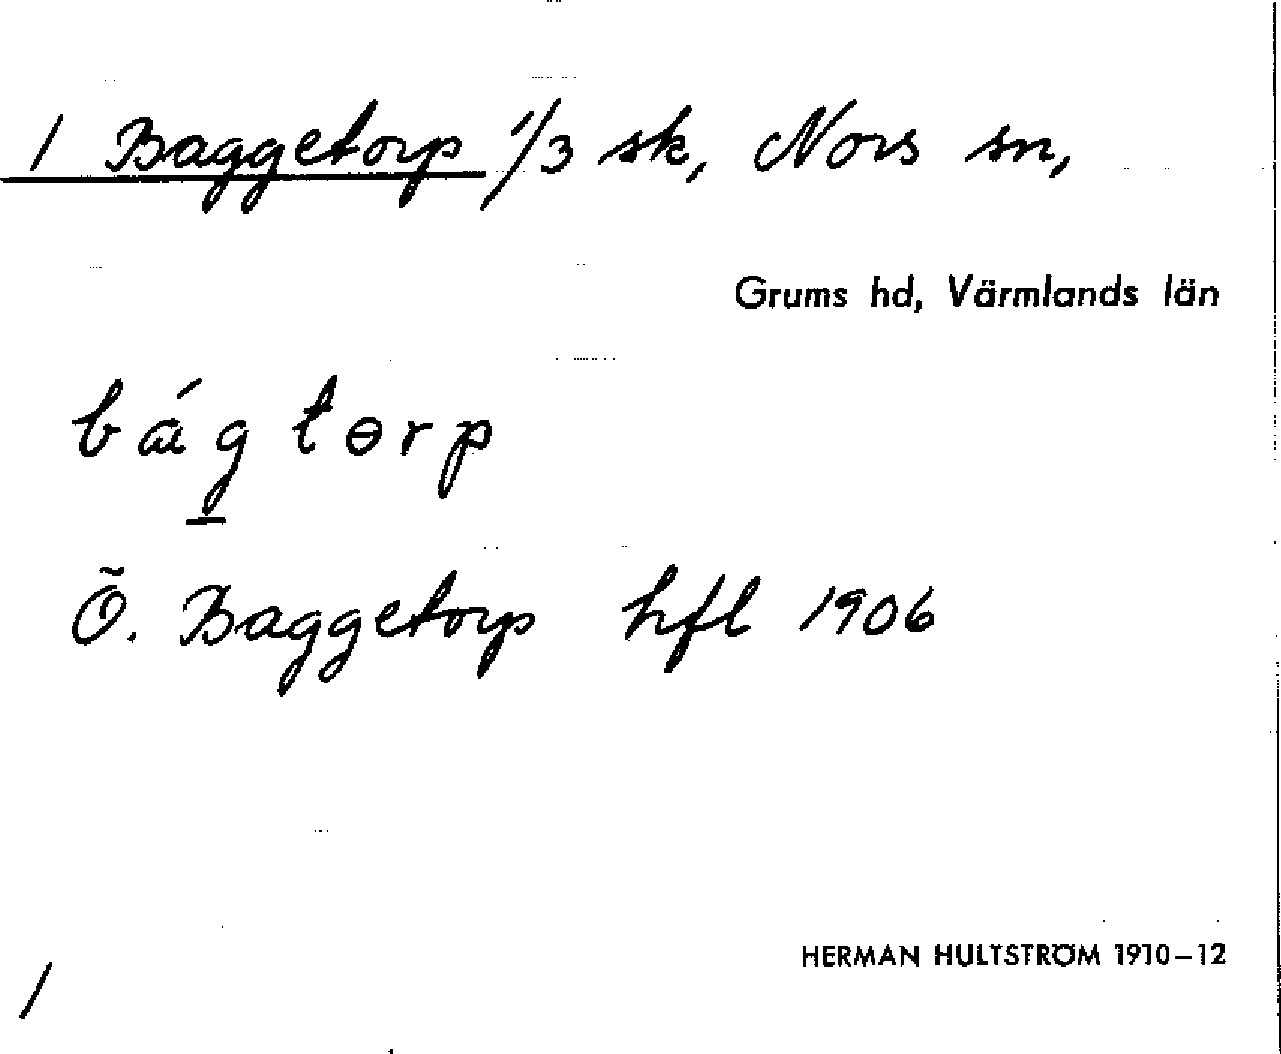 1 Baggetorp 1/3 sk, Nors sn,
Grums hd, Värmlands län
bágtɵrp
Ö. Baggetorp hfl 1906
HERMAN HULTSTRÖM 1910–12
/